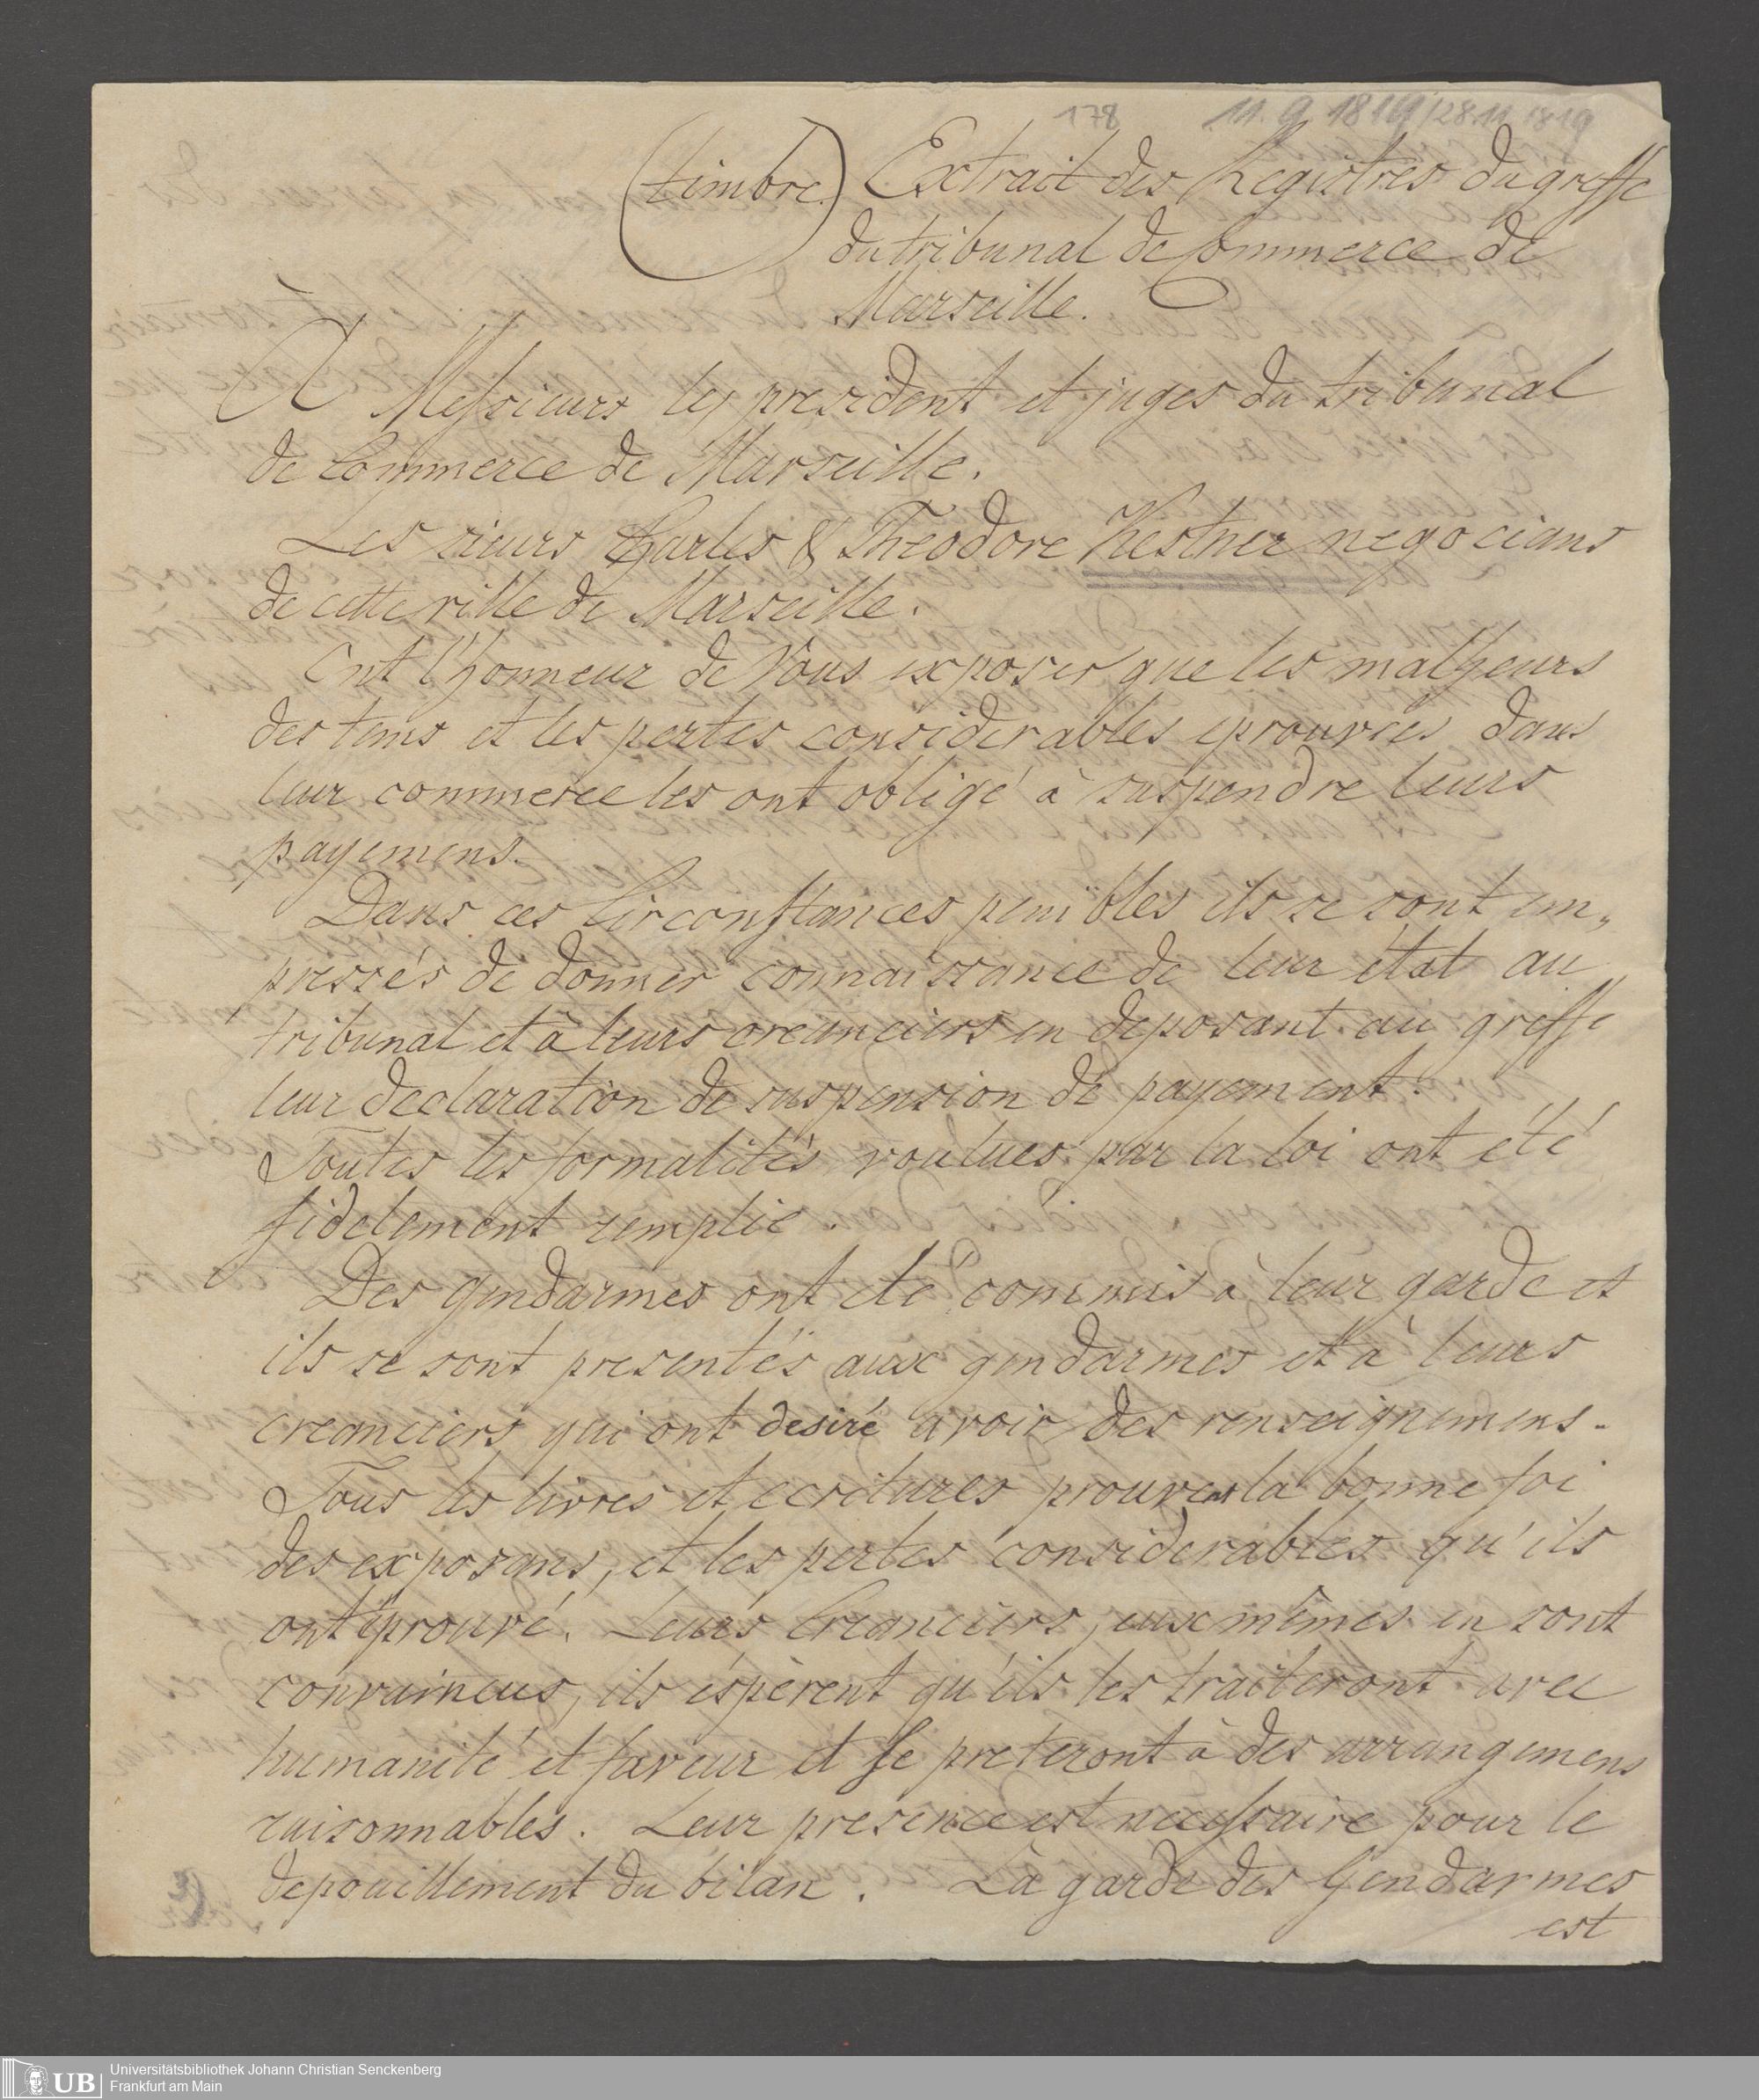 178 11.9.1819/28.11.1819
(timbre.) Extrait des Registres du greffe
du tribunal de Commerce de
Marseille.
À Messieurs les president et juges du tribunal
de Commerce de Marseille.
Les sieurs Charles & Theodore Kestner negocians
de cette ville de Marseille.
Ont l'honneur de Vous exposer que les malheurs
des tems et les pertes considerables eprouvées dans
leur commerce les ont obligé à suspendre leurs
payemens.
Dans ces Circonstances penibles ils se sont em„
pressés de donner connaissance de leur état au
tribunal et à leurs creanciers en deposant au greffe
leur declaration de suspension de payement.
Toutes les formalités voulues par la loi ont été
fidelement remplie.
Des gendarmes ont eté commis à leur garde et
ils se sont presentés aux gendarmes et à leurs
creanciers qui ont desiré avoir des renseignemens.
Tous les livres et ecritures prouvent la bonne foi
des exposans, et les pertes considerables qu'ils
ont éprouvé. Leurs Creanciers, eux mêmes en sont
convaincus, ils éspèrent qu'ils les traiteront avec
humanité et faveur et se preteront à des arrangemens
raisonnables. Leur presence est necessaire pour le
depouillement du bilan. La garde des Gendarmes
est
UB Universitätsbibliothek Johann Christian Senckenberg
Frankfurt am Main